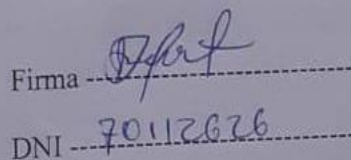 Firma
DNI 70112626